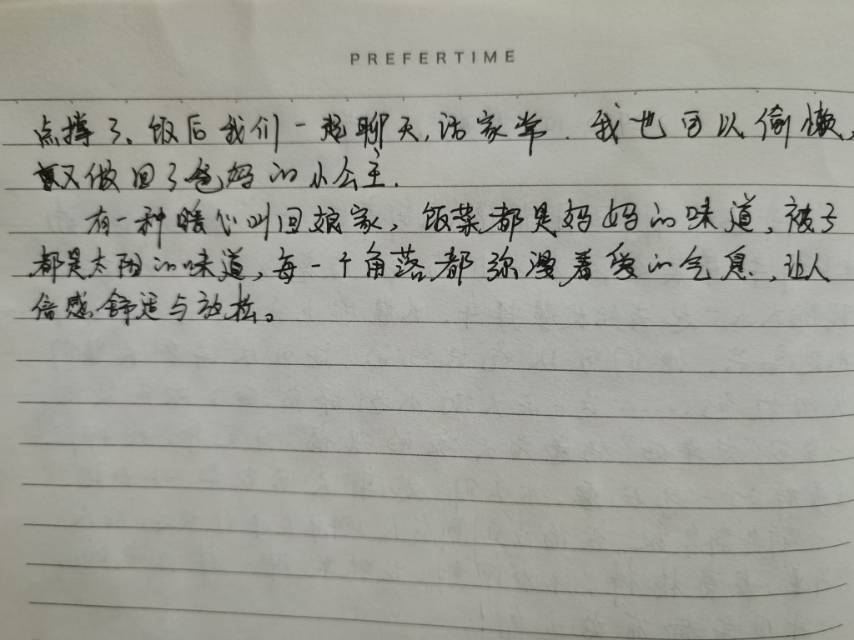 PREFERTIME
点撑了、饭后我们一起聊天,话家常.我也可以偷懒,
又做回了爸妈的小公主.
有一种暖心叫回娘家,饭菜都是妈妈的味道,被子
都是太阳的味道,每一个角落都弥漫着爱的气息,让人
倍感舒适与放松。